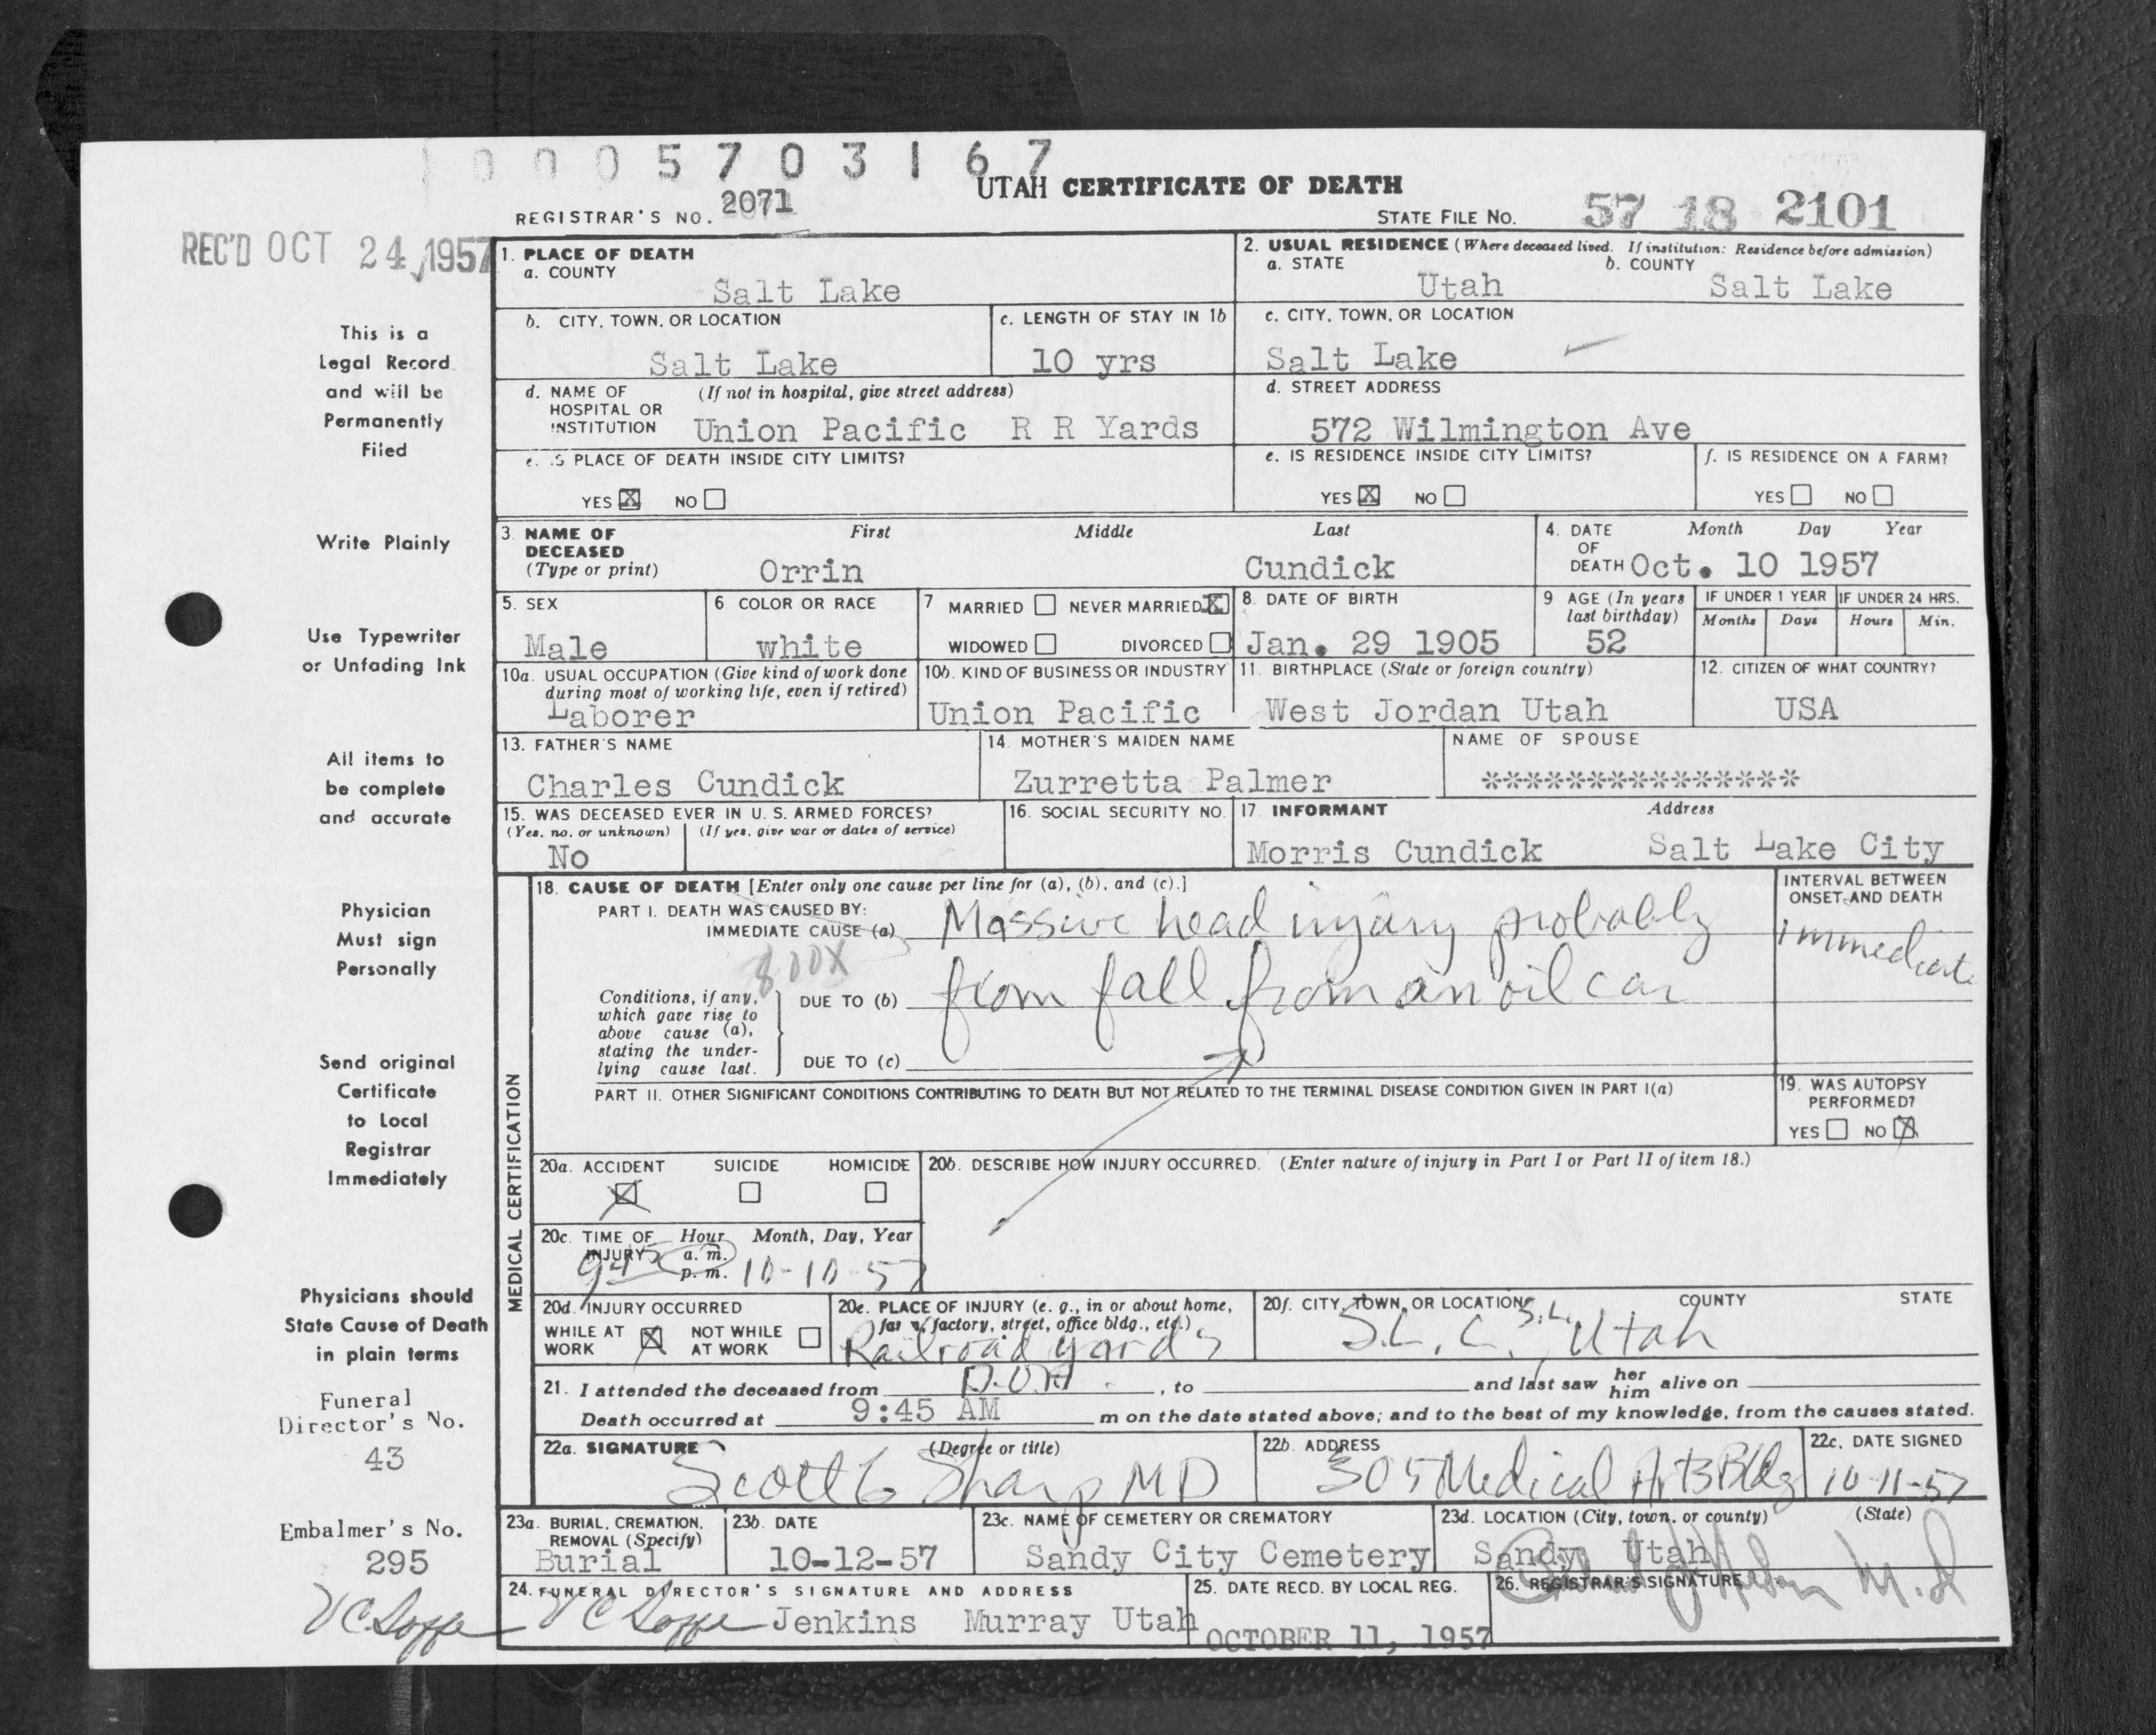 0005703167
UTAH CERTIFICATE OF DEATH
REGISTRAR'S NO. 2071
STATE FILE NO. 57 18 2101
REC'D OCT 24, 1957
This is a
Legal Record
and will be
Permanently
Filed
Write Plainly
Use Typewriter
or Unfading Ink
All items to
be complete
and accurate
Physician
Must sign
Personally
Send original
Certificate
to Local
Registrar
Immediately
Physicians should
State Cause of Death
in plain terms
Funeral
Director's No.
43
Embalmer's No.
295
1. PLACE OF DEATH
a. COUNTY
Salt Lake
2. USUAL RESIDENCE (Where deceased lived. If institution: Residence before admission)
a. STATE b. COUNTY
Utah Salt Lake
b. CITY, TOWN, OR LOCATION
Salt Lake
c. LENGTH OF STAY IN 1b
10 yrs
c. CITY, TOWN, OR LOCATION
Salt Lake
d. NAME OF (If not in hospital, give street address)
HOSPITAL OR
INSTITUTION Union Pacific R R Yards
d. STREET ADDRESS
572 Wilmington Ave
e. IS PLACE OF DEATH INSIDE CITY LIMITS?
YES X NO
e. IS RESIDENCE INSIDE CITY LIMITS?
YES X NO
f. IS RESIDENCE ON A FARM?
YES NO
3. NAME OF First Middle Last
DECEASED
(Type or print) Orrin Cundick
4. DATE Month Day Year
OF
DEATH Oct. 10 1957
5. SEX
Male
6 COLOR OR RACE
white
7 MARRIED NEVER MARRIED X
WIDOWED DIVORCED
8. DATE OF BIRTH
Jan. 29 1905
9 AGE (In years
last birthday)
52
IF UNDER 1 YEAR IF UNDER 24 HRS.
Months Days Hours Min.
10a. USUAL OCCUPATION (Give kind of work done
during most of working life, even if retired)
Laborer
10b. KIND OF BUSINESS OR INDUSTRY
Union Pacific
11. BIRTHPLACE (State or foreign country)
West Jordan Utah
12. CITIZEN OF WHAT COUNTRY?
USA
13. FATHER'S NAME
Charles Cundick
14. MOTHER'S MAIDEN NAME
Zurretta Palmer
NAME OF SPOUSE
***************
15. WAS DECEASED EVER IN U. S. ARMED FORCES?
(Yes, no, or unknown) (If yes, give war or dates of service)
No
16. SOCIAL SECURITY NO.
17. INFORMANT Address
Morris Cundick Salt Lake City
MEDICAL CERTIFICATION
18. CAUSE OF DEATH [Enter only one cause per line for (a), (b), and (c).]
PART I. DEATH WAS CAUSED BY:
IMMEDIATE CAUSE (a) Massive head injury probably
800X
Conditions, if any,
which gave rise to
above cause (a),
stating the under-
lying cause last.
DUE TO (b) from fall from an oil car
DUE TO (c)
INTERVAL BETWEEN
ONSET AND DEATH
immediate
PART II. OTHER SIGNIFICANT CONDITIONS CONTRIBUTING TO DEATH BUT NOT RELATED TO THE TERMINAL DISEASE CONDITION GIVEN IN PART I(a)
19. WAS AUTOPSY
PERFORMED?
YES NO X
20a. ACCIDENT SUICIDE HOMICIDE
X
20b. DESCRIBE HOW INJURY OCCURRED. (Enter nature of injury in Part I or Part II of item 18.)
20c. TIME OF Hour Month, Day, Year
INJURY a. m.
945 p. m. 10-10-57
20d. INJURY OCCURRED
WHILE AT WORK X NOT WHILE AT WORK
20e. PLACE OF INJURY (e. g., in or about home,
farm, factory, street, office bldg., etc.)
Railroad yards
20f. CITY, TOWN, OR LOCATION COUNTY STATE
S.L.C., S.L. Utah
21. I attended the deceased from D.O.A. , to and last saw her him alive on
Death occurred at 9:45 AM m on the date stated above; and to the best of my knowledge, from the causes stated.
22a. SIGNATURE (Degree or title)
Scott G Sharp MD
22b. ADDRESS
305 Medical Arts Bldg
22c. DATE SIGNED
10-11-57
23a. BURIAL, CREMATION,
REMOVAL (Specify)
Burial
23b. DATE
10-12-57
23c. NAME OF CEMETERY OR CREMATORY
Sandy City Cemetery
23d. LOCATION (City, town, or county) (State)
Sandy Utah
24. FUNERAL DIRECTOR'S SIGNATURE AND ADDRESS
Jenkins Murray Utah
25. DATE RECD. BY LOCAL REG.
OCTOBER 11, 1957
26. REGISTRAR'S SIGNATURE
M.D